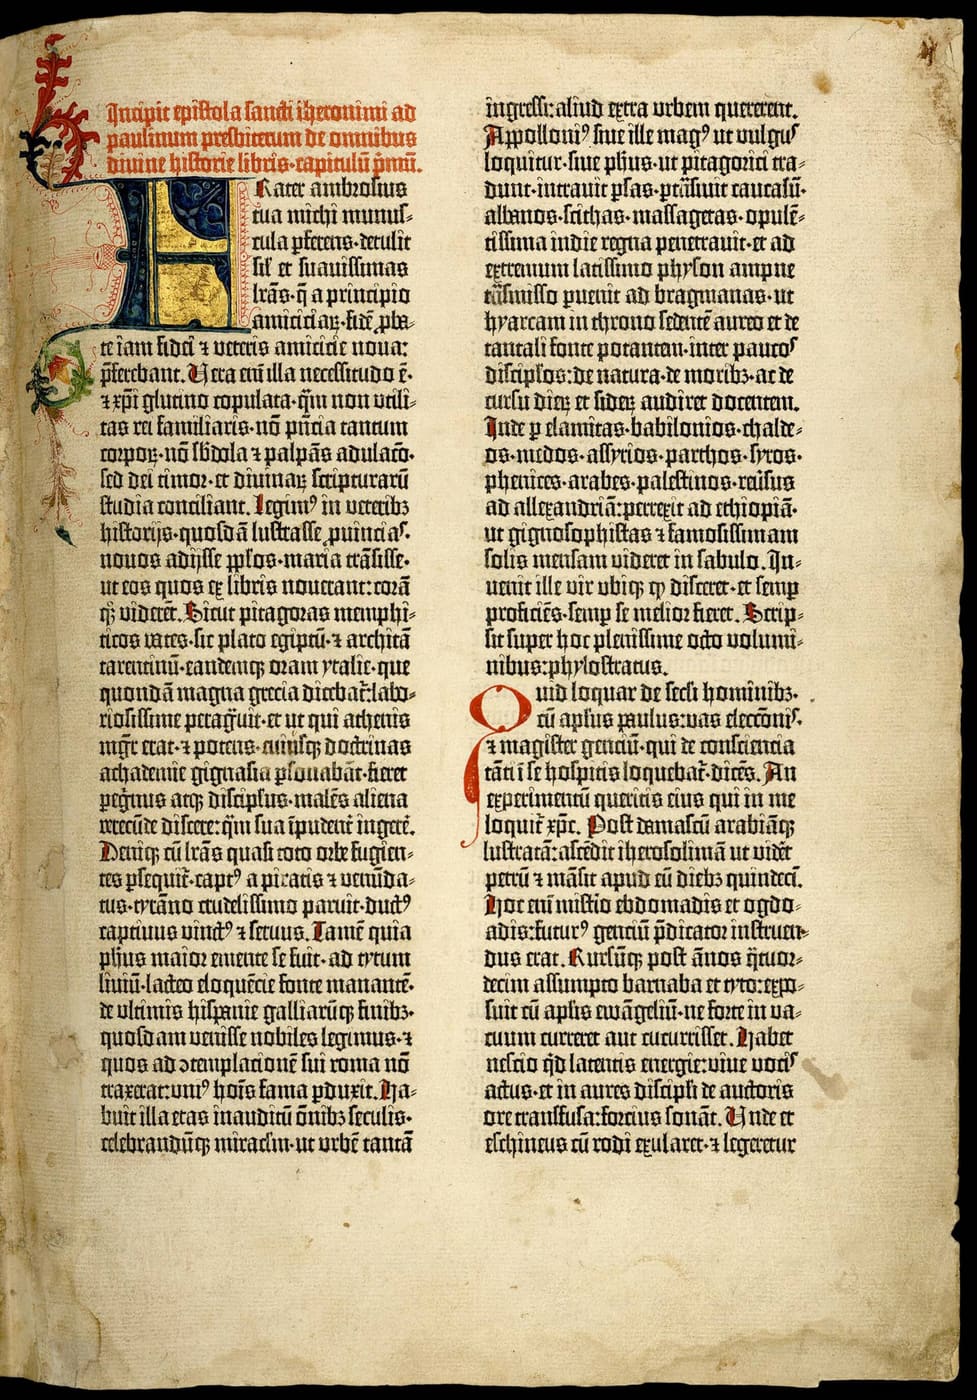 Incipit epistola sancti iheronimi ad
paulinum presbiterum de omnibus
divine historie libris·capitulū pᵐmū.
Frater ambrosius
tua michi munus⸗
cula ꝑferens·detulit
sił et suauissimas
lrās·q̄ a principio
amiciciaꝝ·fidē ꝓba⸗
te iam fidei ⁊ veteris amicicie noua:
p̄ferebant. Vera eni̅ illa necessitudo ē·
⁊ xp̄i glutino copulata·q̄m non vtili⸗
tas rei familiaris·nō pn̄cia tantum
corpoꝝ·nō sb̄dola ⁊ palpās adulacō·
sed dei timor·et diuinaꝝ scripturarū
studia conciliant. Legimꝰ in veteribꝫ
historijs·quosdā lustrasse ꝓuinciaˢ·
nouos adijsse pp̄los·maria trāsisse·
ut eos quos ex libris nouerant: corā
qꝫ viderēt. Sicut pitagoras memphi⸗
ticos vates·sic plato egiptū·⁊ architā
tarentinū·eandemqꝫ oram ytalie·que
quondā magna grecia dicebat̄: labo⸗
riosissime peragᷓuit·et ut qui athenis
mgr̄ erat·⁊ potens·cuiusqꝫ doctrinas
achademie gignasia ꝑsonabāt·fieret
peg̓nus atqꝫ discipłus·malēs aliena
verecūde discere: q̄m sua īpudent̓ ingerē.
Deniqꝫ cū lrās quasi toto orbe fugien⸗
tes ꝑsequit̄·captꝰ a piratis ⁊ venūda⸗
tus·tyrāno crudelissimo paruit·ductꝰ
captiuus vinctꝰ ⁊ seruus. Tamē quia
ph̄us maior emente se fuit·ad tytum
liuiū·lacteo eloquēcie fonte manantē·
de vltimis hispanie galliarūqꝫ finibꝫ·
quosdam venisse nobiles legimus·⁊
quos ad ↄtemplacionē sui roma nō
traxerat: vniꝰ hoīs fama ꝑduxit. Ha⸗
buit illa etas inauditū ōnibꝫ seculis·
celebrandūqꝫ miraclm̄·ut vrbē tantā
ingressi: aliud extra vrbem quererent.
Appolloniꝰ siue ille magꝰ ut vulguˢ
loquitur·siue ph̄us·ut pitagorici tra⸗
dunt·intrauit ꝑsas·ptāsiuit caucasū·
albanos·scithas·massagetas·opulē⸗
tissima indie regna penetrauit·et ad
extremum latissimo physon ampne
tāsmisso ꝑuenit ad bragmanas·ut
hyarcam in throno sedentē aureo et de
tantali fonte potantem·inter paucoˢ
discipłos: de natura·de moribꝫ·ac de
cursu dieꝝ et sideꝝ audiret docentem.
Inde ꝑ elamitas·babilonios·chalde⸗
os·medos·assyrios·parthos·syros·
phenices·arabes·palestinos·reūsus
ad allexandriā: perrexit ad ethiopiā·
ut gignosophistas ⁊ famosissimam
solis mensam videret in sabulo. In⸗
uenit ille vir vbiqꝫ qđ disceret·et semꝑ
proficiēs·semꝑ se melior fieret. Scrip⸗
sit super hoc plenissime octo volumi⸗
nibus: phylostratus.
Quid loquar de secłi hominibꝫ·
cū apłus paulus: vas eleccōniˢ·
⁊ magister genciū·qui de consciencia
tāti ī se hospitis loquebat̄·dicēs. An
experimentū queritis eius qui in me
loquit̄ xp̄c. Post damascū arabiāqꝫ
lustratā: ascēdit iherosolimā ut vidēt
petrū ⁊ māsit apud eū diebꝫ quindeci̅.
Hoc eni̅ mist̓io ebdomadis et ogdo⸗
adis: futurꝰ genciū p̄dicator instruen⸗
dus erat. Rursūqꝫ post ānos q̄tuor⸗
decim assumpto barnaba et tyto: expo⸗
suit cū aplis ewāgeliū·ne forte in va⸗
cuum curreret aut cucurrisset. Habet
nescio qđ latentis energie: viue vociˢ
actus·et in aures discipłi de auctoris
ore transfusa: forcius sonāt. Vnde et
eschineus cū rodi exularet·⁊ legeretur